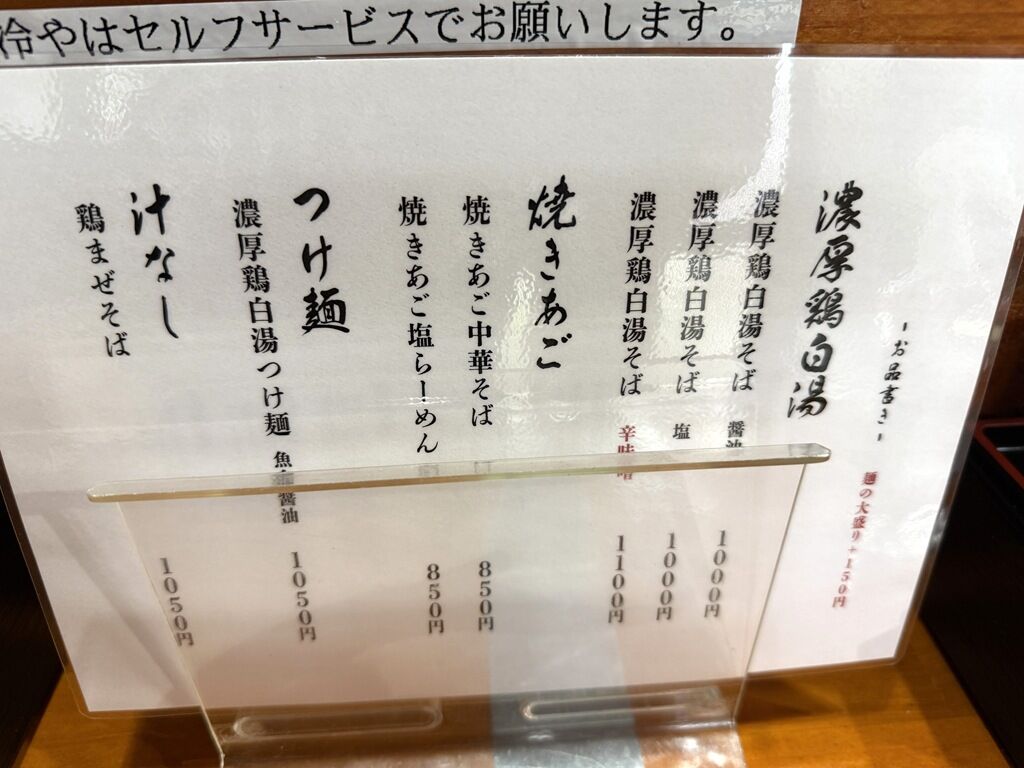 冷やはセルフサービスでお願いします。
-お品書き-
麺の大盛り+150円
濃厚鶏白湯
濃厚鶏白湯そば 醤油 1000円
濃厚鶏白湯そば 塩 1000円
濃厚鶏白湯そば 辛味 1100円
焼きあご
焼きあご中華そば 850円
焼きあご塩らーめん 850円
つけ麺
濃厚鶏白湯つけ麺 魚介醤油 1050円
汁なし
鶏まぜそば 1050円